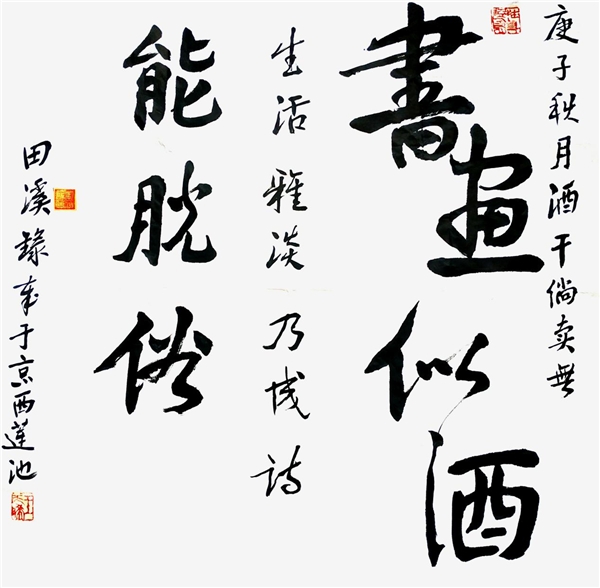 庚子秋月酒干倘卖無
書画似酒
生活雅淡乃成诗
能脱俗
田溪錄于京西莲池